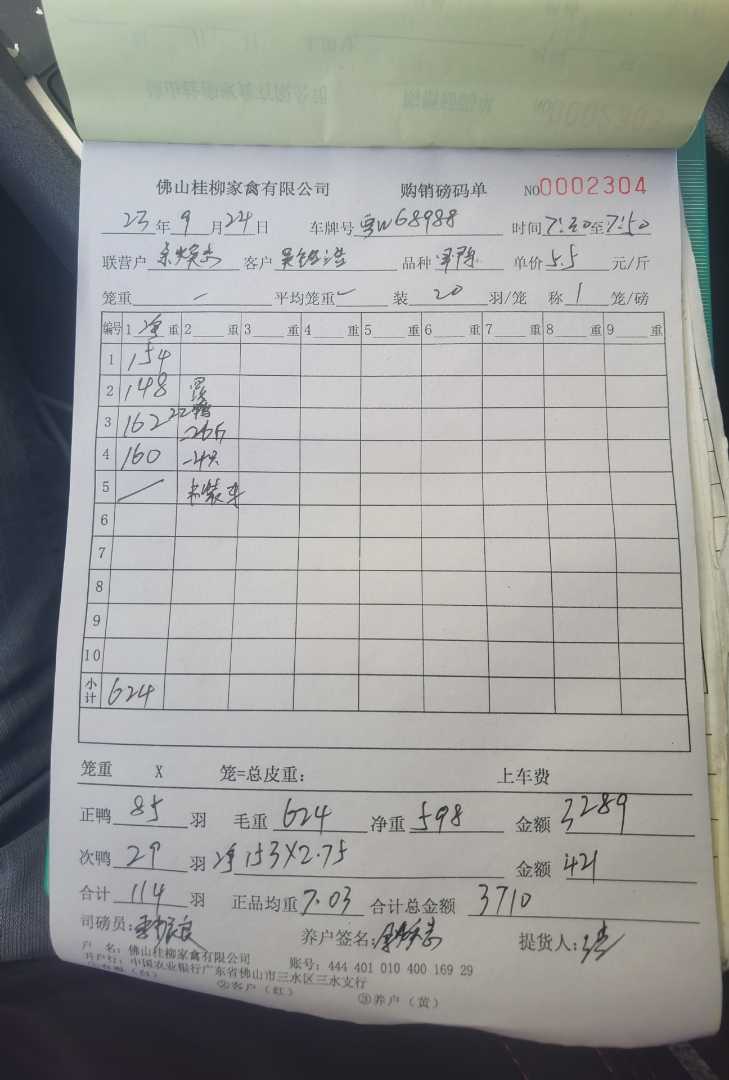 佛山桂柳家禽有限公司 购销磅码单 NO0002304
23年9月24日 车牌号 W68988 时间7:30至7:50
联营户 客户 品种 单价5.5元/斤
笼重 — 平均笼重 — 装20羽/笼 称1笼/磅
编号 1净重 2重 3重 4重 5重 6重 7重 8重 9重
1 154
2 148
3 162 22
4 160
5 — 装车
6
7
8
9
10
小计 624
笼重 X 笼=总皮重: 上车费
正鸭85羽 毛重624 净重598 金额3289
次鸭29羽 净153X2.75 金额421
合计114羽 正品均重7.03 合计总金额3710
司磅员: 养户签名: 提货人:
户 名: 佛山桂柳家禽有限公司 账号: 444 401 010 400 169 29
开户行: 中国农业银行广东省佛山市三水区三水支行
②客户(红) ③养户(黄)